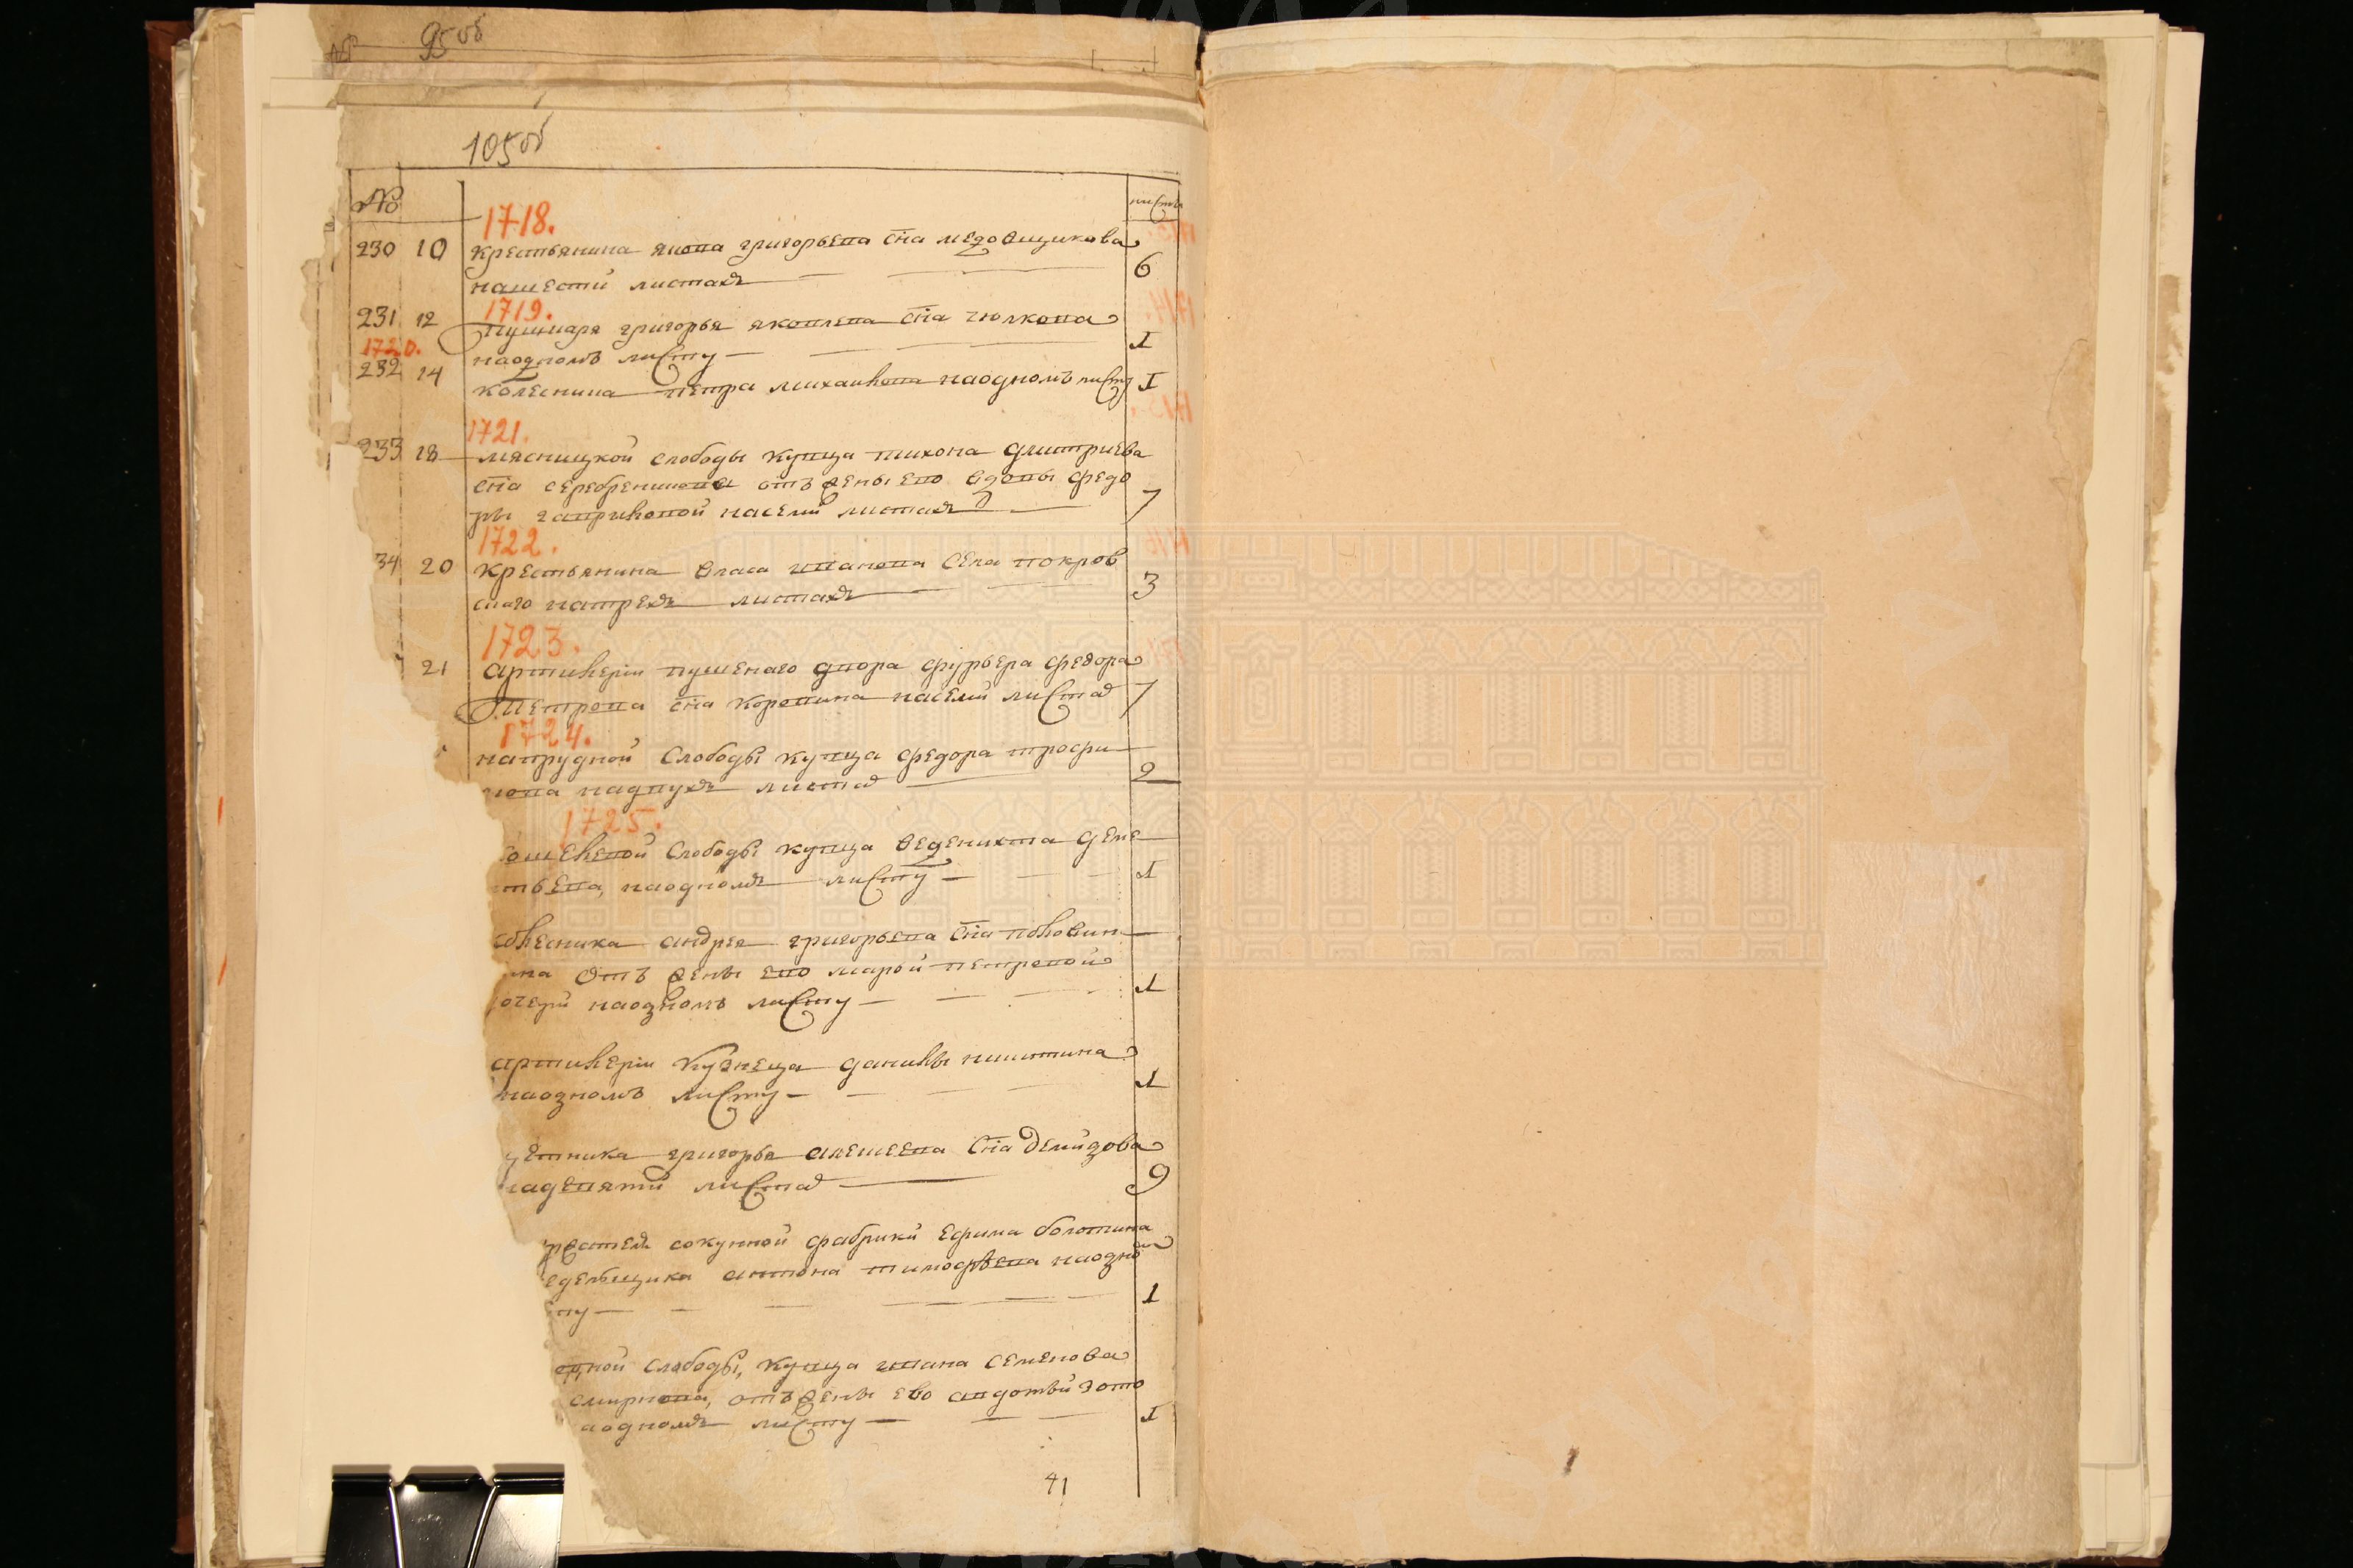 95 об
№
105 об
№ листы
1718.
230 10 крестьянина якова григорьева сна медовщикова
нашести листахъ 6
1719.
231 12 пушкаря григорья яковлева сна
наодномъ листу 1
1720.
232 14 колесника петра михаилова наодномъ листу 1
1721.
233 18 мясницкой слободы купца тихона дмитриева
сна серебреникова отъ жены ево вдовы федо
ры гавриловой насеми листахъ 7
1722.
34 20 крестьянина власа иванова села покров
скаго натрехъ листахъ 3
1723.
21 артилерiи пушечнаго двора фурьера федора
петрова сна корепина насеми листах 7
1724.
напрудной слободы купца федора трофи
мова надвухъ листах 2
1725.
ошелевой слободы купца веденихта деме
тьева, наодномъ листу 1
андрея григорьева сна половин
ина отъ жены ево марьи петровой
очери наодномъ листу 1
артилерiи кузнеца данилы никитина
наодномъ листу 1
григорья алексеева сна демидова
надевяти листах 9
сокунной фабрики ефима болотина
антона тимофеева наодно
ту 1
дной слободы, купца ивана семенова
смирнова, отъ жены ево авдотьи зото
аодномъ листу 1
41